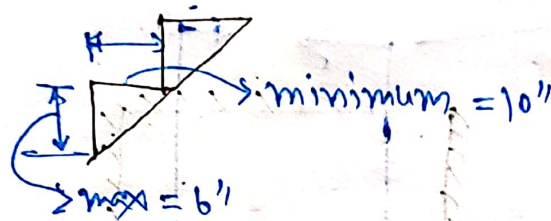 minimum = 10"
max = 6"